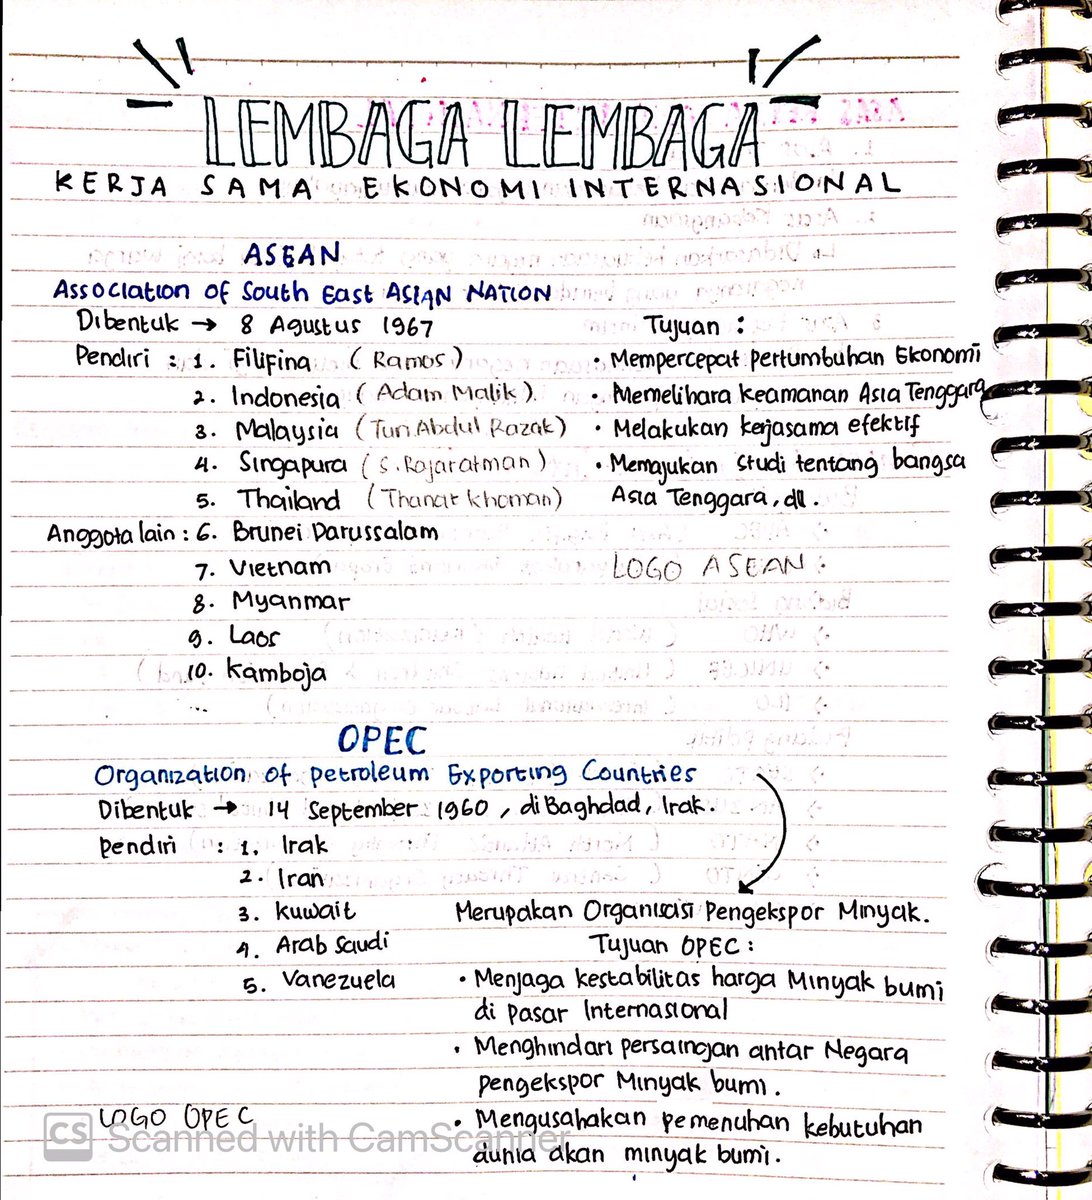 LEMBAGA LEMBAGA
KERJA SAMA EKONOMI INTERNASIONAL
ASEAN
Association of South East ASIAN NATION
Dibentuk → 8 Agustus 1967
Pendiri : 1. Filifina (Ramos)
2. Indonesia (Adam Malik)
3. Malaysia (Tun Abdul Razak)
4. Singapura (S. Rajaratman)
5. Thailand (Thanat khoman)
Anggota lain : 6. Brunei Darussalam
7. Vietnam
8. Myanmar
9. Laos
10. Kamboja
Tujuan :
• Mempercepat pertumbuhan Ekonomi
• Memelihara keamanan Asia Tenggara
• Melakukan kerjasama efektif
• Memajukan studi tentang bangsa
Asia Tenggara, dll.
LOGO ASEAN :
OPEC
Organization of petroleum Exporting Countries
Dibentuk → 14 September 1960, di Baghdad, Irak.
pendiri : 1. Irak
2. Iran
3. kuwait
4. Arab Saudi
5. Vanezuela
Merupakan Organisasi Pengekspor Minyak.
Tujuan OPEC :
• Menjaga kestabilitas harga Minyak bumi
di pasar Internasional
• Menghindari persaingan antar Negara
pengekspor Minyak bumi.
• Mengusahakan pemenuhan kebutuhan
dunia akan minyak bumi.
LOGO OPEC
CS Scanned with CamScanner